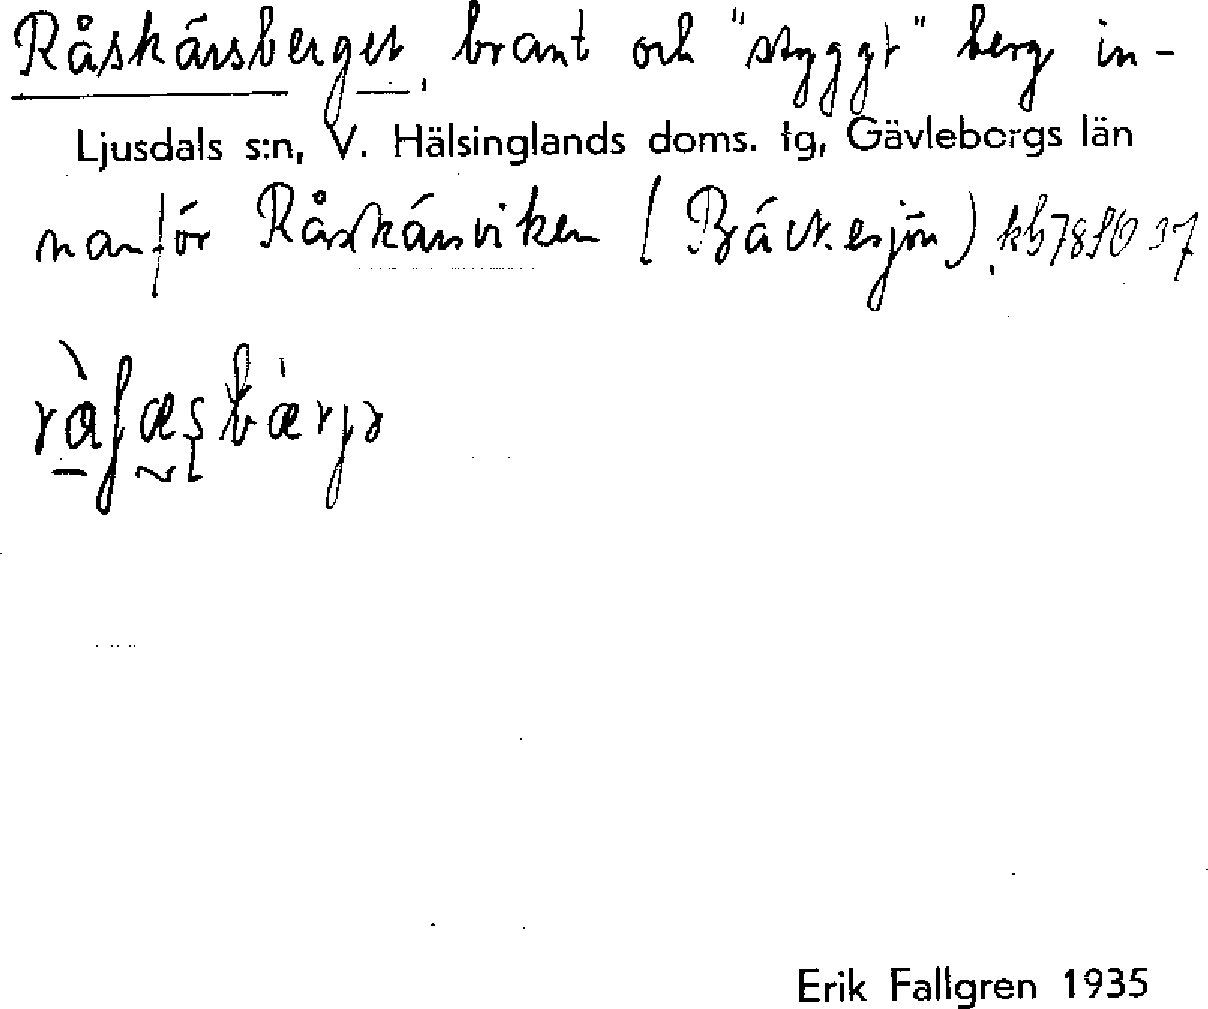 Råskärsberget, brant och "styggt" berg in-
Ljusdals s:n, V. Hälsinglands doms. tg, Gävleborgs län
nanför Råskärsviken (Bäckesjön)
Erik Fallgren 1935